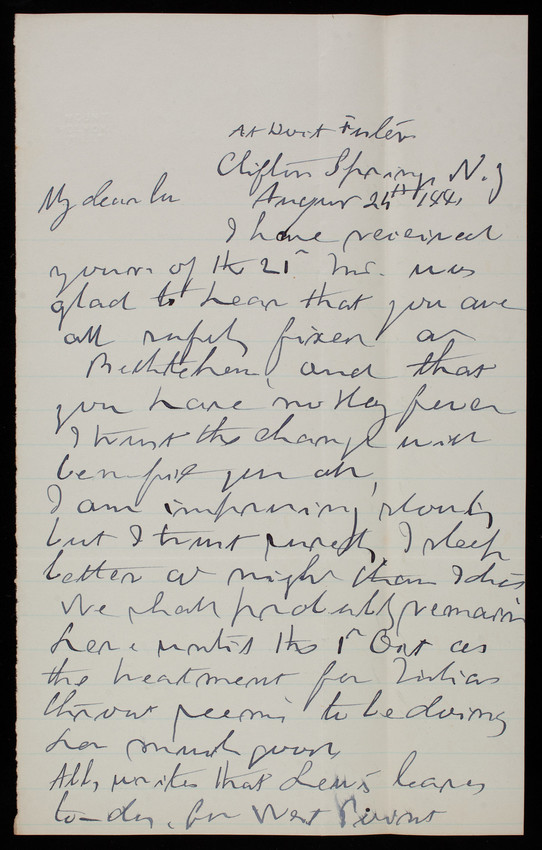 Clifton Springs, N.Y
My dear
August 24th 1881
I have received
yours of the 21st Inst. was
glad to hear that you are
all safely fixed at
Bethlehem, and that
you have no Hay fever
I trust the change will
benefit you all,
I am improving slowly
but I trust surely, I sleep
better at night than I did
We shall probably remain
here until the 1st Oct as
the treatment for
throat seems to be doing
her much good,
writes that Lewis leaves
to-day, for West Point